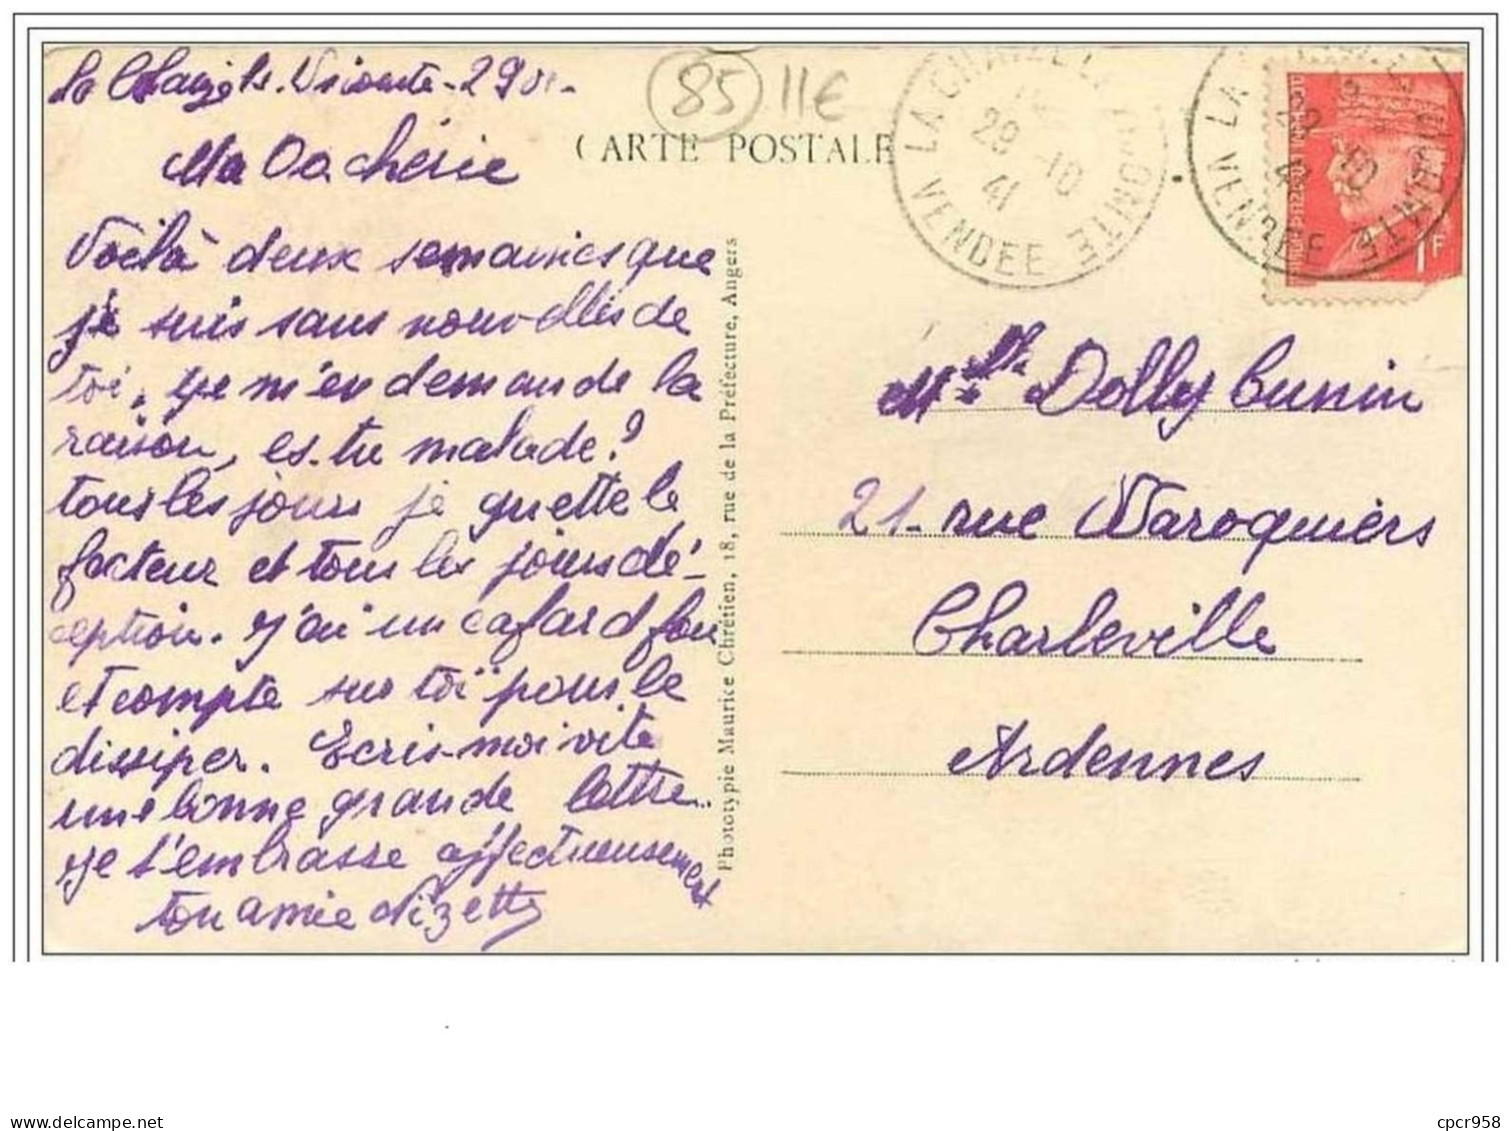 la Chaize le Vicomte - 29
85 11€
CARTE POSTALE
LA CHAIZE LE VICOMTE
29 -10
41
VENDEE
LA VICOMTE
29 10
41
VENDEE
1F
Ma chérie
Voilà deux semaines que
je suis sans nouvelles de
toi, je m'en demande la
raison, es-tu malade?
tous les jours je guette le
facteur et tous les jours dé-
ception. J'ai un cafard fou
et compte sur toi pour le
dissiper. Ecris-moi vite
une bonne grande lettre.
Je t'embrasse affectueusement
ton amie Lizette
Phototypie Maurice Chrétien, 18, rue de la Préfecture, Angers
Mlle Dolly Cunin
21- rue Waroquiers
Charleville
Ardennes
cpcr958